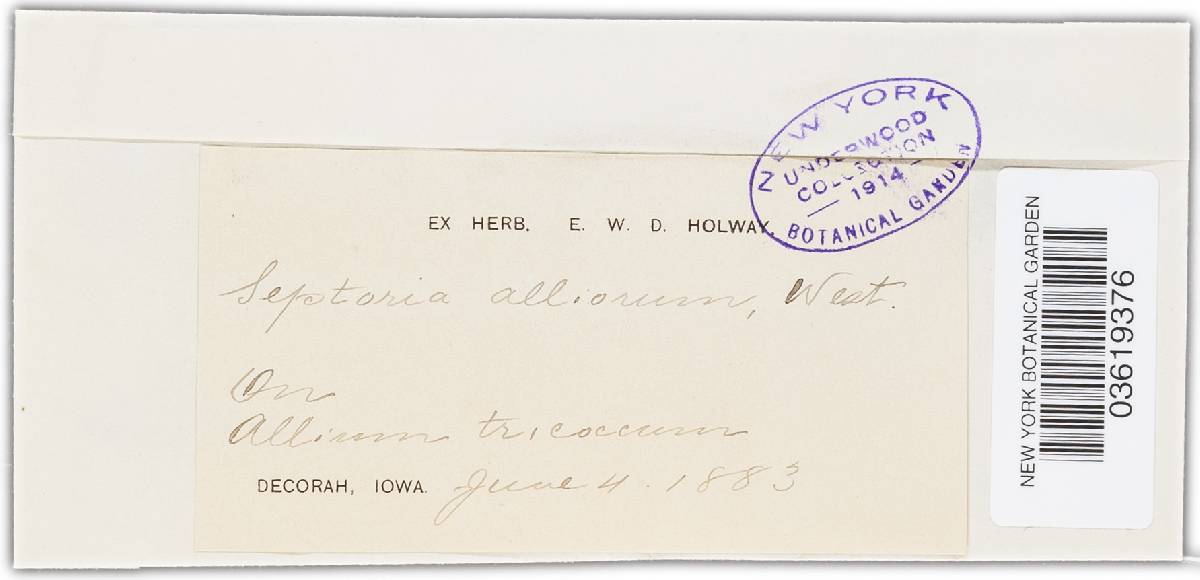 NEW YORK
UNDERWOOD
COLLECTION
— 1914 —
BOTANICAL GARDEN
EX HERB. E. W. D. HOLWAY.
Septoria alliorum, West.
On
Allium tricoccum
DECORAH, IOWA. June 4. 1883
NEW YORK BOTANICAL GARDEN
03619376